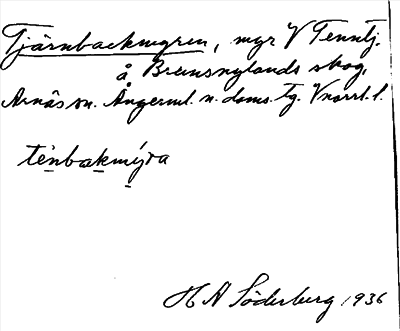 Tjärnbackmyren, myr V Tenntj.
å Bremsnylands skog,
Arnäs sn. Ångerml. n. doms. tg. Vnorrl. l.
tènbakmýra
H A Söderberg 1936